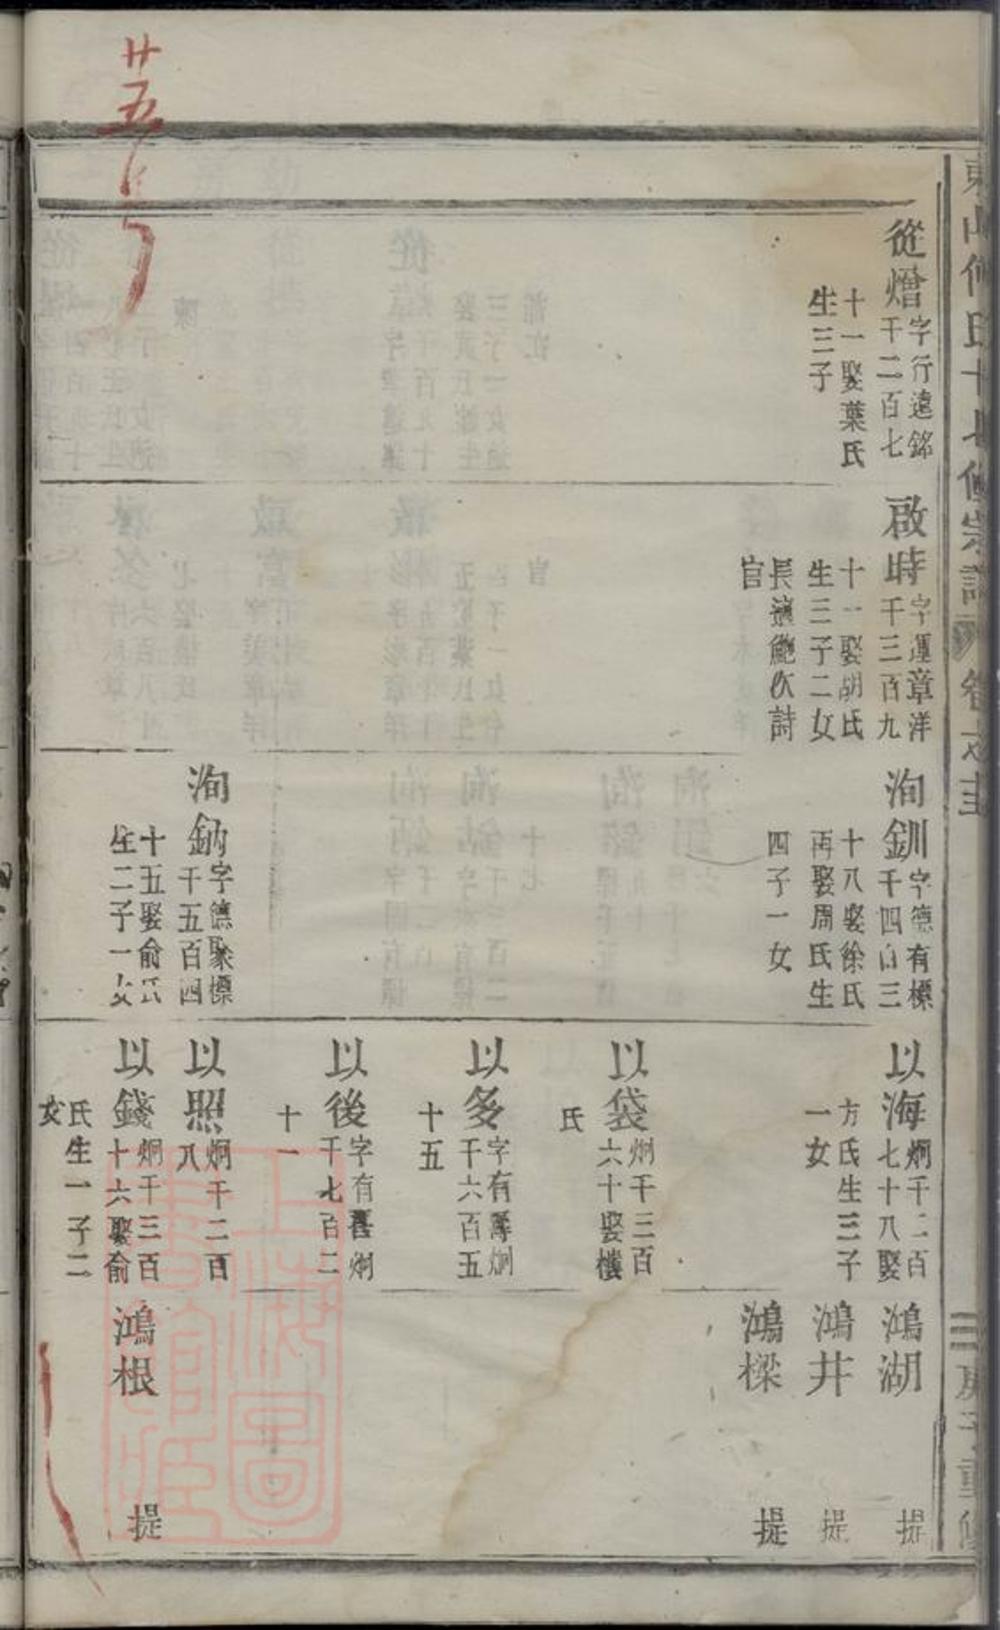 從熷
字行遠銘
千二百七
十一娶葉氏
生三子
啟時
字運章洋
千三百九
十一娶胡氏
生三子二女
長適鮑次詩
官
洵釧
字德有標
千四百三
十八娶徐氏
再娶周氏生
四子一女
洵鈉
字德聚標
千五百四
十五娶俞氏
生二子一女
以海
炯千二百
七十八娶
方氏生三子
一女
以袋
炯千三百
六十娶樓
氏
以多
字有厚炯
千六百五
十五
以後
字有舊炯
千七百二
十一
以照
炯千二百
八
以錢
炯千三百
十六娶俞
氏生一子二
女
鴻湖
提
鴻井
提
鴻樑
提
鴻根
提
上海圖書館藏